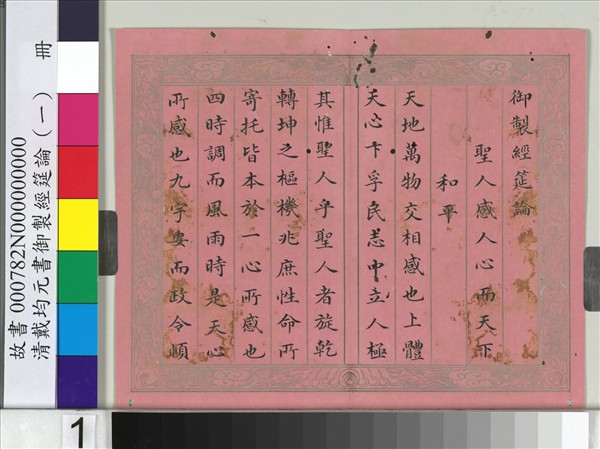 御製經筵論
聖人感人心而天下
和平
天地萬物交相感也上體
天心下孚民志中立人極
其惟聖人乎聖人者旋乾
轉坤之樞機兆庶性命所
寄托皆本於一心所感也
四時調而風雨時是天心
所感也九宇安而政令順
故書 000782N000000000
清戴均元書御製經筵論(一) 冊
1